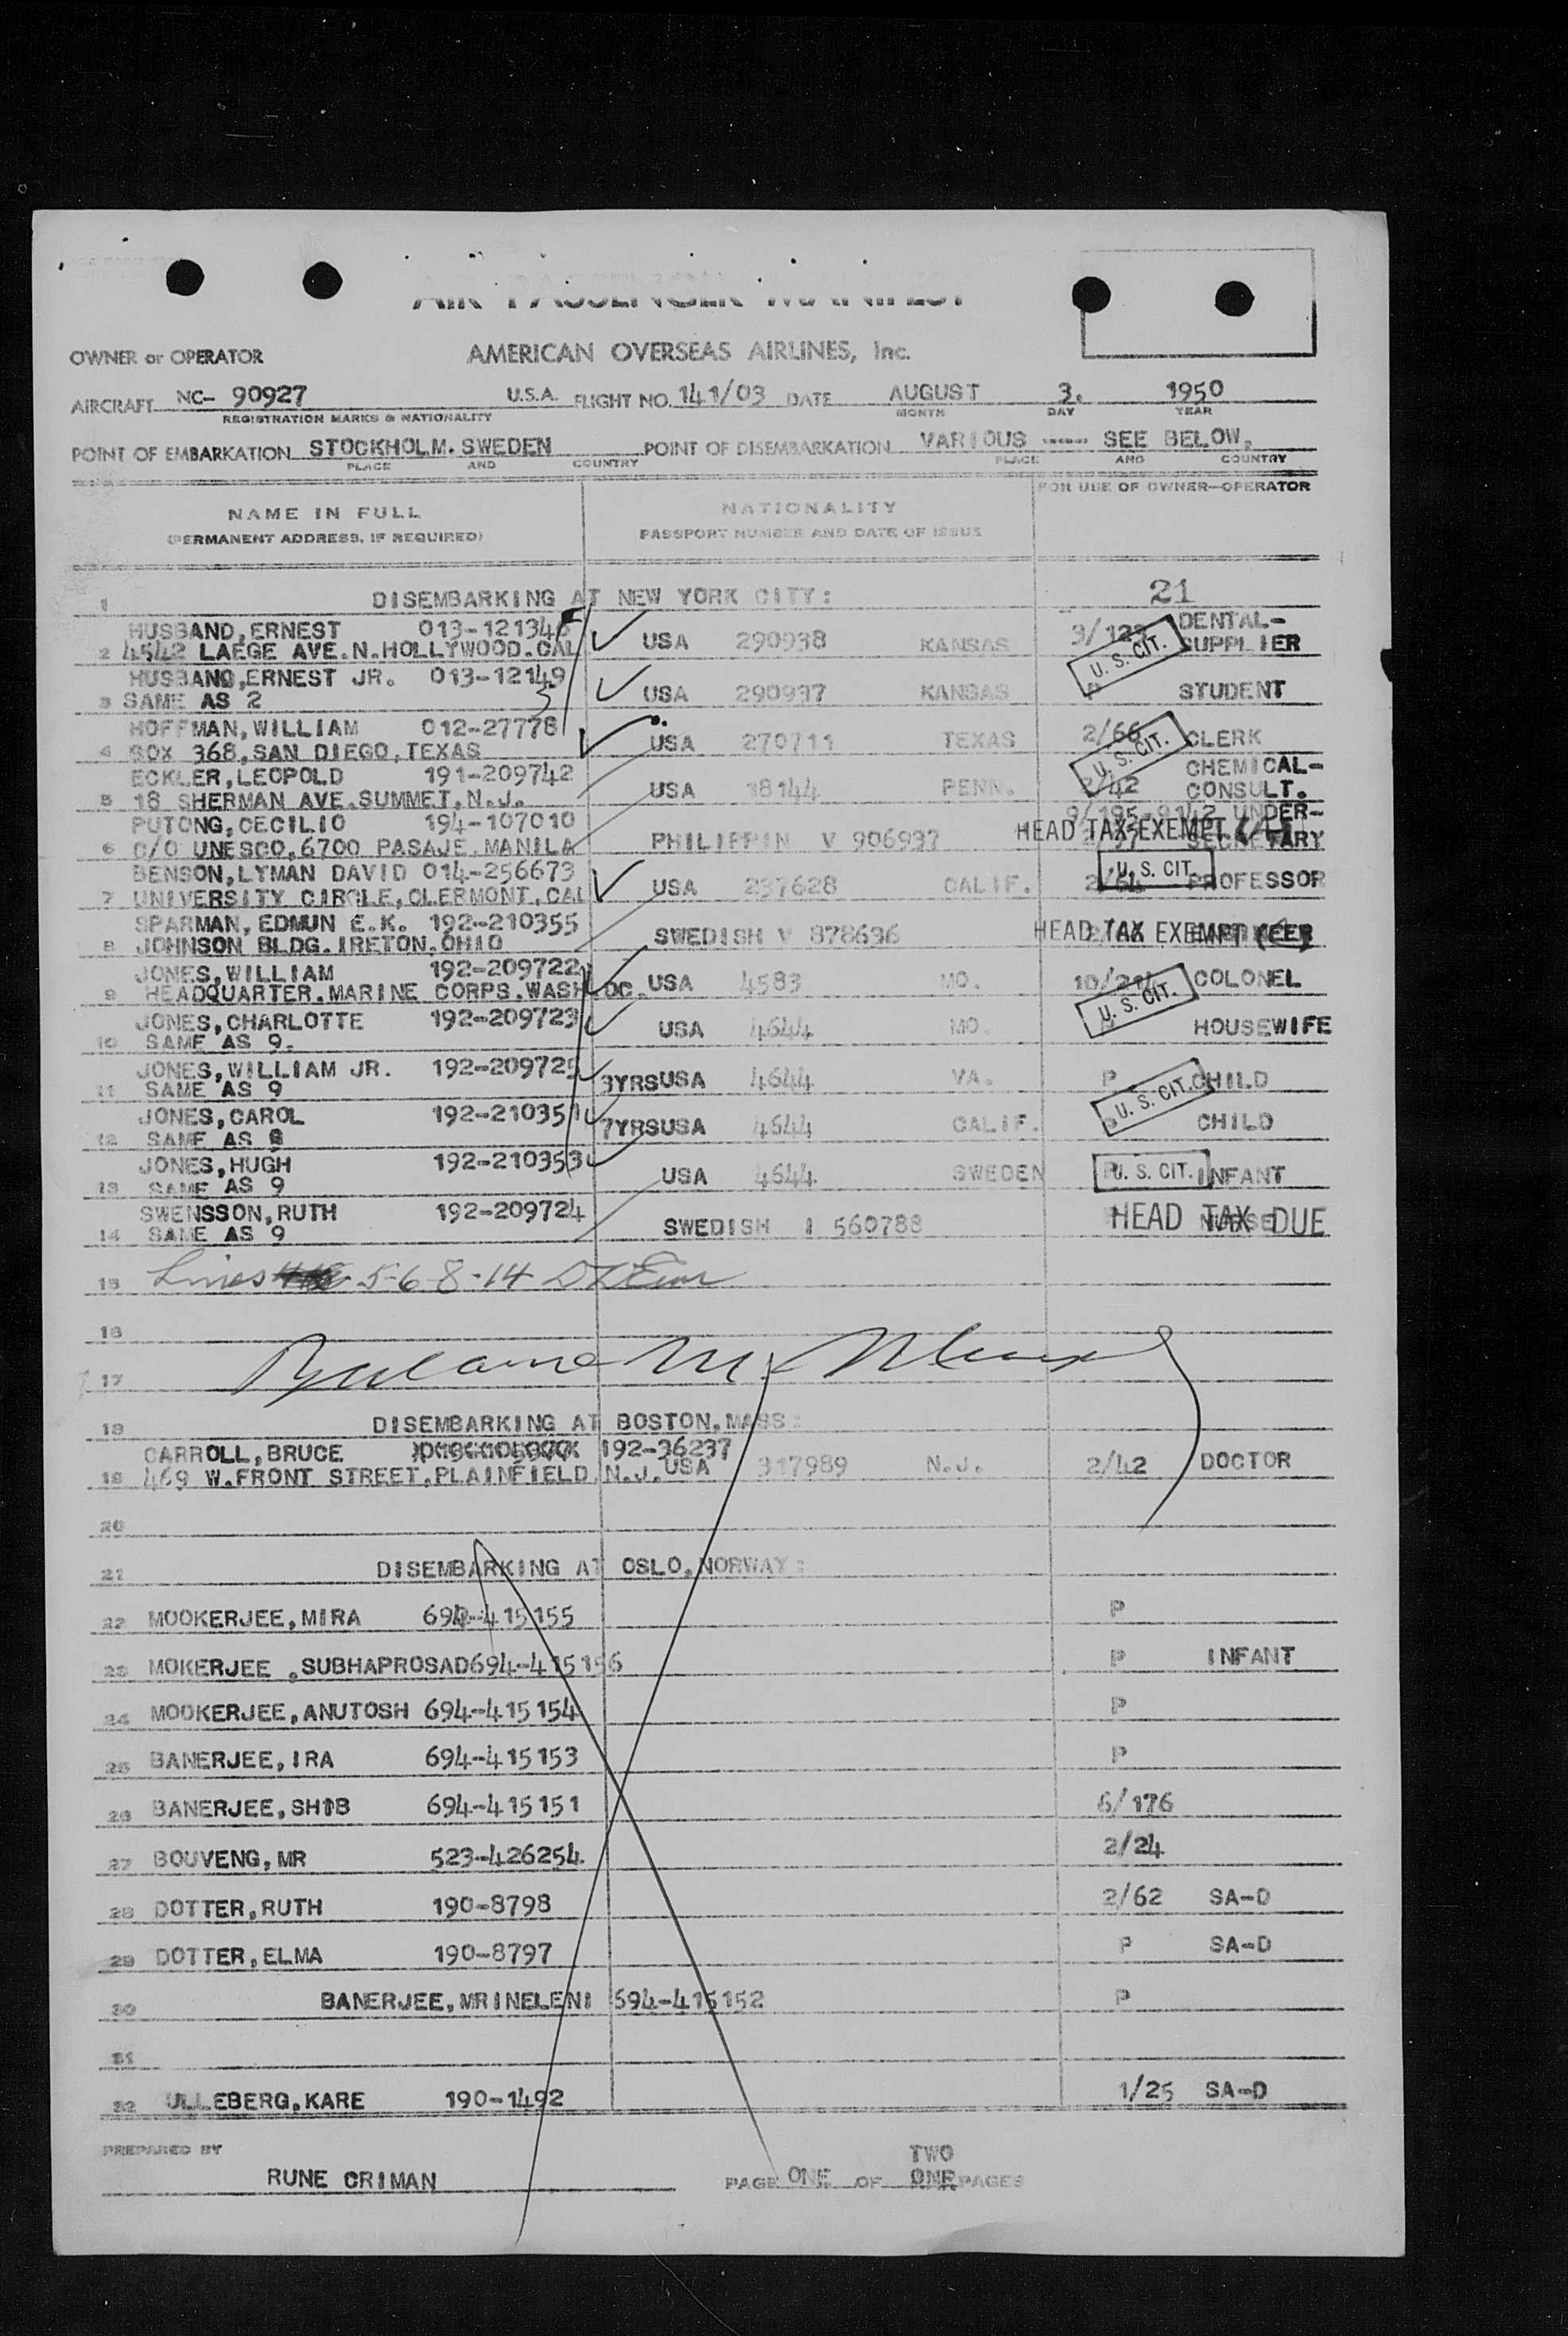 AIR PASSENGER MANIFEST
OWNER or OPERATOR AMERICAN OVERSEAS AIRLINES, Inc.
AIRCRAFT NC- 90927 U.S.A. FLIGHT NO. 141/03 DATE AUGUST 3. 1950
REGISTRATION MARKS & NATIONALITY MONTH DAY YEAR
POINT OF EMBARKATION STOCKHOLM. SWEDEN POINT OF DISEMBARKATION VARIOUS ---- SEE BELOW.
PLACE AND COUNTRY PLACE AND COUNTRY
FOR USE OF OWNER—OPERATOR
NAME IN FULL NATIONALITY
(PERMANENT ADDRESS, IF REQUIRED) PASSPORT NUMBER AND DATE OF ISSUE
1 DISEMBARKING AT NEW YORK CITY: 21
HUSBAND,ERNEST 013-121346 USA 290938 KANSAS DENTAL-
2 4542 LAEGE AVE.N.HOLLYWOOD.CAL U. S. CIT. SUPPLIER
HUSBAND,ERNEST JR. 013-12149 USA 290937 KANSAS P STUDENT
3 SAME AS 2
HOFFMAN,WILLIAM 012-27778 USA 270711 TEXAS 2/66 CLERK
4 BOX 368,SAN DIEGO,TEXAS U. S. CIT.
ECKLER,LEOPOLD 191-209742 USA 18144 PENN. 2/42 CHEMICAL-
5 18 SHERMAN AVE.SUMMET,N.J. CONSULT.
PUTONG,CECILIO 194-107010 PHILIPPIN V 906937 UNDER-
6 C/O UNESCO,6700 PASAJE.MANILA HEAD TAX EXEMPT SECRETARY
BENSON,LYMAN DAVID 014-256673 USA 237628 CALIF. 2/64 U. S. CIT. PROFESSOR
7 UNIVERSITY CIRCLE,CLERMONT,CAL
SPARMAN, EDMUN E.K. 192-210355 SWEDISH V 878636 HEAD TAX EXEMPT
8 JOHNSON BLDG.IRETON.OHIO
JONES,WILLIAM 192-209722 USA 4583 MO. COLONEL
9 HEADQUARTER.MARINE CORPS.WASH DC. U. S. CIT.
JONES,CHARLOTTE 192-209723 USA 4644 MO. HOUSEWIFE
10 SAME AS 9.
JONES,WILLIAM JR. 192-209725 3YRSUSA 4644 VA. P CHILD
11 SAME AS 9 U. S. CIT.
JONES,CAROL 192-210351 7YRSUSA 4644 CALIF. CHILD
12 SAME AS 9
JONES,HUGH 192-210353 USA 4644 SWEDEN U. S. CIT. INFANT
13 SAME AS 9
SWENSSON,RUTH 192-209724 SWEDISH 560788 HEAD TAX DUE
14 SAME AS 9
15 Lines 5-6-8-14
16
17
18 DISEMBARKING AT BOSTON,MASS:
CARROLL,BRUCE 192-36237
19 469 W.FRONT STREET.PLAINFIELD.N.J. USA 317989 N.J. 2/42 DOCTOR
20
21 DISEMBARKING AT OSLO,NORWAY:
22 MOOKERJEE,MIRA 694-415155 P
23 MOKERJEE ,SUBHAPROSAD694-415156 P INFANT
24 MOOKERJEE,ANUTOSH 694-415154 P
25 BANERJEE,IRA 694-415153 P
26 BANERJEE,SHIB 694-415151 6/176
27 BOUVENG,MR 523-426254 2/24
28 DOTTER,RUTH 190-8798 2/62 SA-D
29 DOTTER,ELMA 190-8797 P SA-D
30 BANERJEE,MRINELENI 694-415152 P
31
32 ULLEBERG,KARE 190-1492 1/25 SA-D
PREPARED BY TWO
RUNE CRIMAN PAGE ONE OF ONE PAGES